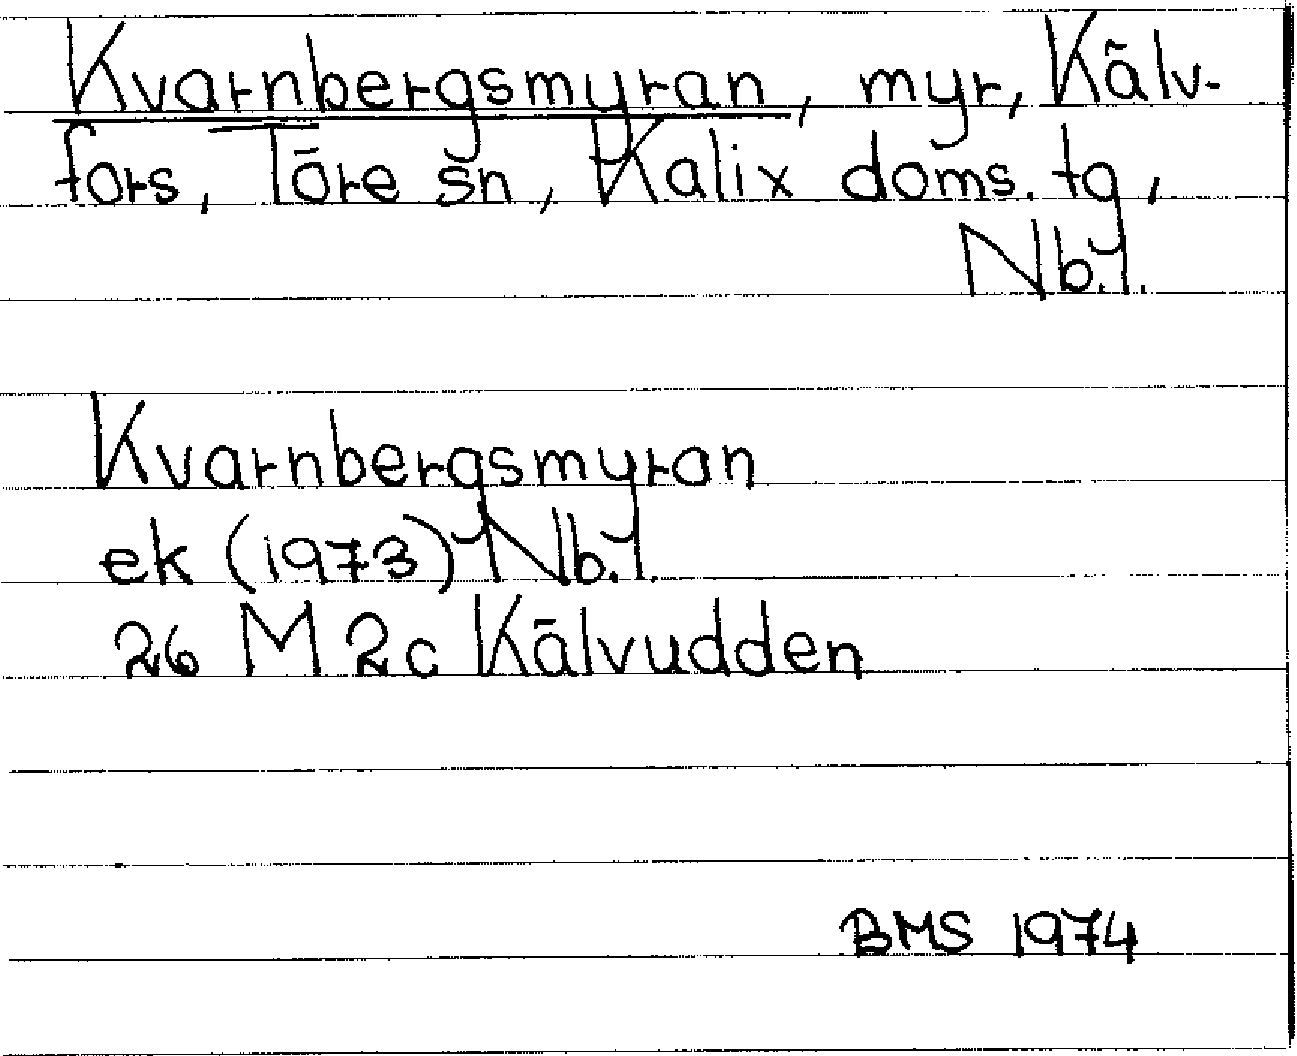 Kvarnbergsmyran, myr, Kälv-
fors, Töre sn, Kalix doms. tg,
Nb.l.
Kvarnbergsmyran
ek (1973) Nb.l.
26 M 2c Kälvudden
BMS 1974